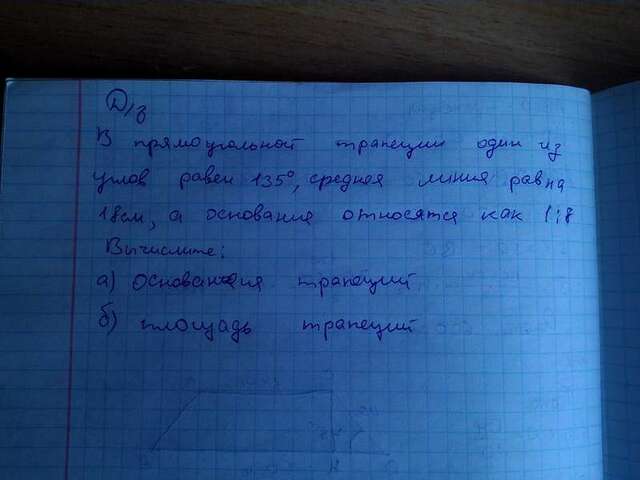 Д/з
В прямоугольной трапеции один из
углов равен 135°, средняя линия равна
18см, а основания относятся как 1:8
Вычислите:
а) основания трапеций
б) площадь трапеций